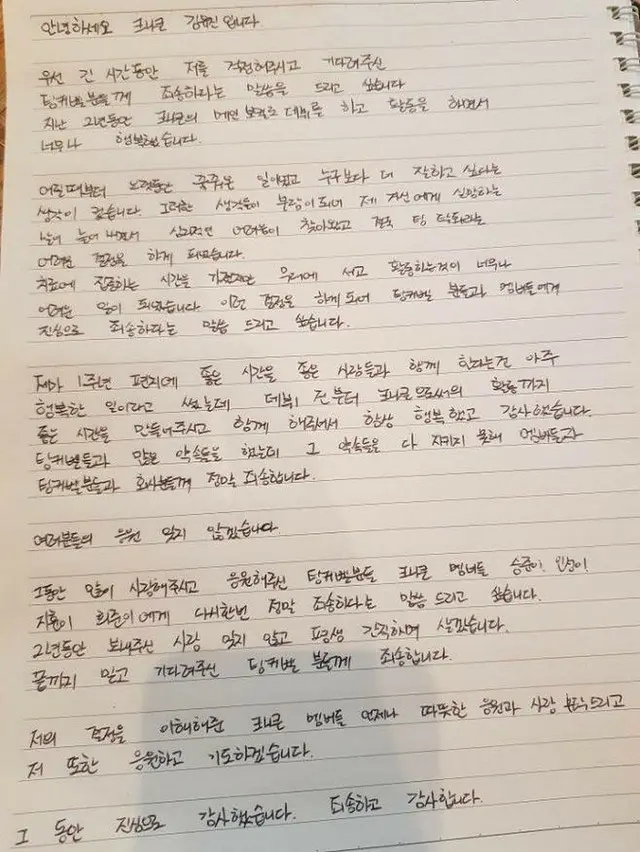 안녕하세요 크나큰 김유진 입니다.
우선 긴 시간동안 저를 걱정해주시고 기다려주신
팅커벨분들께 죄송하다는 말씀을 드리고 싶습니다
지난 2년동안 크나큰의 메인보컬로 데뷔를 하고 활동을 하면서
너무나 행복했습니다.
어릴때부터 오랫동안 꿈꿔온 일이었고 누구보다 더 잘하고 싶다는
생각이 컸습니다. 그러한 생각들이 부담이되어 제 자신에게 실망하는
날이 늘어나면서 심리적인 어려움이 찾아왔고 결국 팀 탈퇴라는
어려운 결정을 하게 되었습니다.
치료에 집중하는 시간을 가졌지만 무대에 서고 활동하는것이 너무나
어려운 일이 되었습니다. 이런 결정을 하게 되어 팅커벨 분들과 멤버들에게
진심으로 죄송하다는 말씀 드리고 싶습니다.
제가 1주년 편지에 좋은 시간을 좋은 사람들과 함께 한다는건 아주
행복한 일이라고 썼는데 데뷔 전부터 크나큰으로써의 활동까지
좋은 시간을 만들어주시고 함께 해주셔서 항상 행복했고 감사했습니다.
팅커벨들과 많은 약속들을 했는데 그 약속들을 다 지키지 못해 멤버들과
팅커벨분들과 회사분들께 정말 죄송합니다.
여러분들의 응원 잊지 않겠습니다
그동안 많이 사랑해주시고 응원해주신 팅커벨분들 크나큰 멤버들 승준이 인성이
지훈이 희준이에게 다시한번 정말 죄송하다는 말씀 드리고 싶습니다.
2년동안 보내주신 사랑 잊지 않고 평생 간직하며 살겠습니다.
끝까지 믿고 기다려주신 팅커벨 분들께 죄송합니다.
저의 결정을 이해해준 크나큰 멤버들 언제나 따뜻한 응원과 사랑 부탁드리고
저 또한 응원하고 기도하겠습니다.
그 동안 진심으로 감사했습니다. 죄송하고 감사합니다.